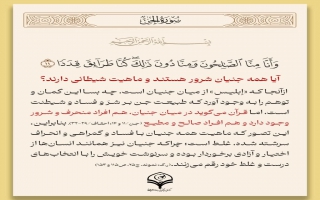 سُورَةُ الجِنّ
بِسْمِ اللَّهِ الرَّحْمَنِ الرَّحِيمِ
وَأَنَّا مِنَّا الصَّالِحُونَ وَمِنَّا دُونَ ذَٰلِكَ كُنَّا طَرَائِقَ قِدَدًا ﴿۱۱﴾
آیا همه جنیان شرور هستند و ماهیت شیطانی دارند؟
ازآنجا که «ابلیس» از میان جنیان است، چه بسا این گمان و
توهم را به وجود آورد که طبیعت جن بر شر و فساد و شیطنت
است. اما قرآن می‌گوید در میان جنیان، هم افراد منحرف و شرور
وجود دارد و هم افراد صالح و مطیع؛ بنابراین،
این تصور که ماهیت همه جنیان با فساد و گمراهی و انحراف
سرشته شده، غلط است؛ چراکه جنیان نیز همانند انسان‌ها از
اختیار و آزادی برخوردار بوده و سرنوشت خویش را با انتخاب‌های
درست و غلط خود رقم می‌زنند.